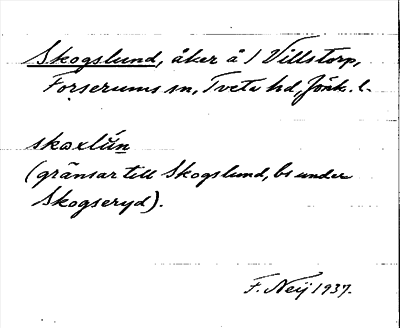 Skogslund, åker å 1 Villstorp,
Forserums sn, Tveta hd, Jönk. l.
skoxlún
(gränsar till Skogslund, bs under
Skogseryd).
F. Neij 1937.